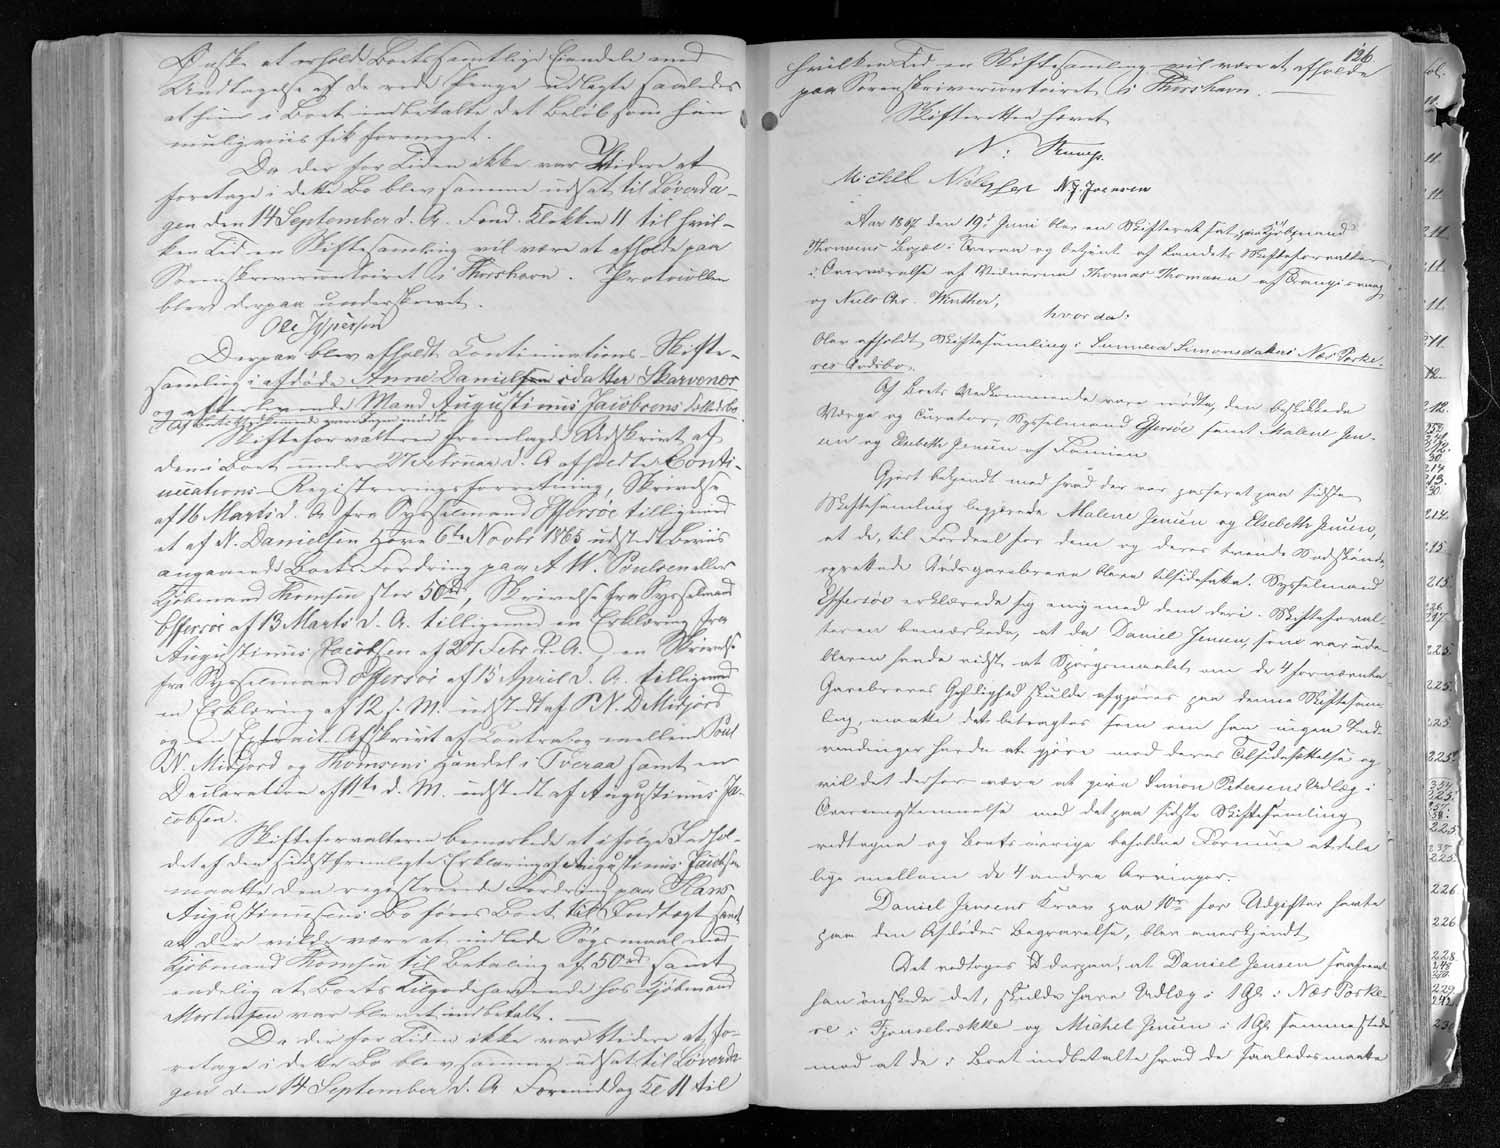 Ønske at erholde Boets samtlige Eiendele med
Undtagelse af de rede Penge udlagte saaledes
at hun i Boet indbetalte det Beløb som hun
muligviis fik formeget.
Da der for Tiden ikke var Videre at
foretage i dette Bo blev samme udsat til Løverda-
gen den 14 September d. A. Form. Klokken 11 til hvil-
ken Tid en Skiftesamling vil være at afholde paa
Sorenskrivercontoiret i Thorshavn. Protocollen
blev derpaa underskrevet.
Ole Jespersen
Derpaa blev afholdt Continuations-Skifte-
samling i afdøde Anne Danielsdatter Skarvenes
og efterlevende Mand Augustinus Jacobsens Fælledsbo.
Af Boets Vedkommende var Ingen mødt.
Skifteforvalteren fremlagde Udskrivt af
den i Boet under 27 Februar d. A. afholdte Conti-
nuations-Registreringsforretning, Skrivelse
af 16 Marts d. A. fra Sysselmand Effersøe tilligemed
et af N. Danielsen Hove 6te Novbr 1865 udstedt Beviis
angaaende Boets Fordring paa A. W. Poulsen eller
Kjøbmand Thomsen stor 50 rd, Skrivelse fra Sysselmand
Effersøe af 13 Marts d. A. tilligemed en Erklæring fra
Augustinus Jacobsen af 27 Febr. d. A. en Skrivelse
fra Sysselmand Effersøe af 15 April d. A. tilligemed
en Erklæring af 12 s. M. udstedt af P. N. D. Midjord
og en Extract Afskrivt af Contrabog mellem Poul
N. Midjord og Thomsens Handel i Tveraa samt en
Declaration af 11te d. M. udstedt af Augustinus Ja-
cobsen.
Skifteforvalteren bemærkede at ifølge Indhol-
det af den sidst fremlagte Erklæring af Augustinus Jacobsen
maatte den registrerede Fordring paa Hans
Augustinusens Bo føres Boet til Indtægt samt
at der vilde være at indlede Søgsmaal mod
Kjøbmand Thomsen til Betaling af 50 rd samt
endelig at Boets Tilgodehavende hos Kjøbmand
Mortensen var blevet indbetalt.
Da der for Tiden ikke var Videre at fo-
retage i dette Bo blev samme udsat til Løverda-
gen den 14 September d. A. Formiddag Kl 11 til
126.
hvilken Tid en Skiftesamling vil være at afholde
paa Sorenskrivercontoiret i Thorshavn.
Skifteretten hævet
Michel N. J. Joensen
Aar 1867 den 19d Juni blev en Skifteret sat paa Kjøbmand
Thomsens Bopæl i Tveraa og betjent af Landets Skifteforvalter
i Overværelse af Vidnerne Thomas Thomasen af Trangisvaag
og Niels Chr. Winther,
hvorda:
blev afholdt Skiftesamling i Sunneva Simonsdatters Næs Porke-
res Arvebo.
Af Boets Vedkommende vare mødte, den beskikkede
Værge og Curator, Sysselmand Effersøe samt Malene Jen-
sen og Elsebeth Jensen af Famien
Gjort bekjendt med hvad der var passeret paa sidste
Skiftesamling begjærede Malene Jensen og Elsebeth Jensen,
at de, til Fordeel for dem og deres tvende Sødskende
oprettede Gavebreve bleve tilsidesatte. Sysselmand
Effersøe erklærede sig enig med dem deri. Skifteforval-
teren bemærkede, at da Daniel Jensen, som var ude-
bleven havde vidst at Spørgsmaalet om de 4 fornævnte
Gavebreves Gyldighed skulde afgjøres paa denne Skiftesam-
ling, maatte det betragtes som om han ingen Ind-
vendinger havde at gjøre mod deres Tilsidesættelse og
vil det derfor være at give Simon Petersen Udlæg i
Overeensstemmelse med det paa sidste Skiftesamling
vedtagne og Boets øvrige beholdne Formue at dele
lige mellem de 4 andre Arvinger.
Daniel Jensens Krav paa 10 rd for Udgifter havte
paa den Afdødes Begravelse, blev anerkjendt
Det vedtoges derpaa, at Daniel Jensen saafremt
han ønskede det, skulde have Udlæg i 1 Gl. i Næs Porke-
re i og Michel Jensen i 1 Gl. sammesteds
mod at de i Boet indbetalte hvad de saaledes maatte